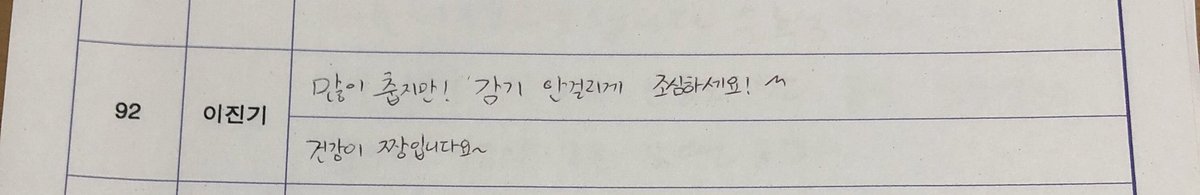 92 이진기 많이 춥지만! 감기 안걸리게 조심하세요! ^^
건강이 짱입니다요~